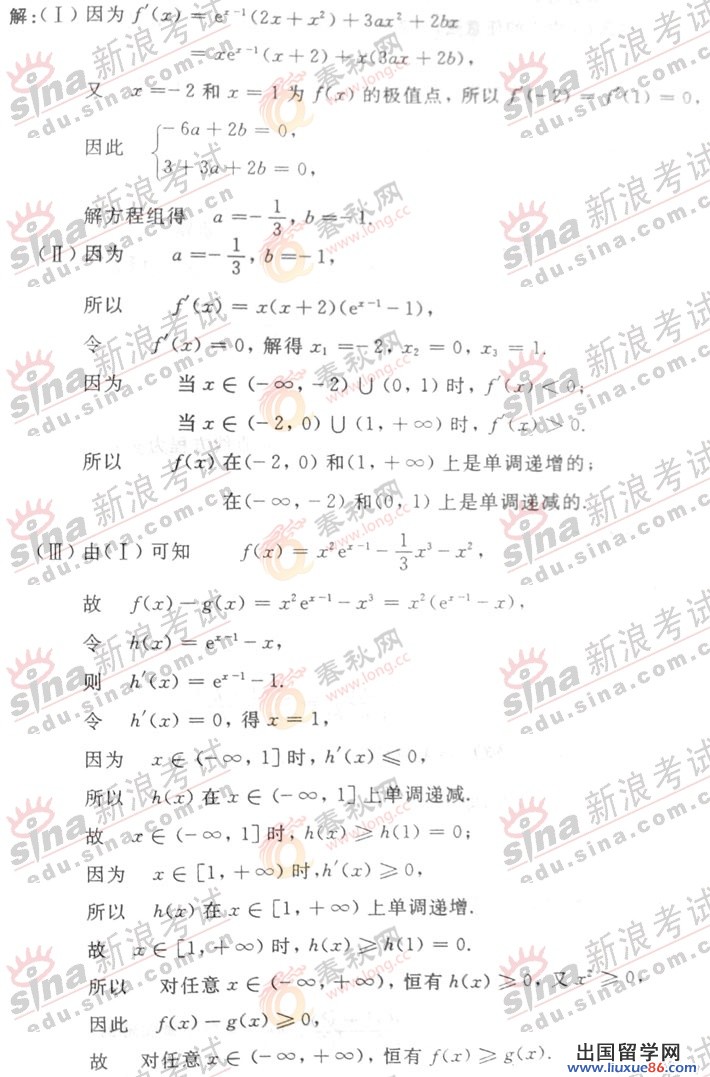 解:(Ⅰ)因为 f′(x) = e^{x-1}(2x + x²) + 3ax² + 2bx
= xe^{x-1}(x + 2) + x(3ax + 2b),
又 x = -2 和 x = 1 为 f(x) 的极值点, 所以 f′(-2) = f′(1) = 0,
因此 { -6a + 2b = 0,
3 + 3a + 2b = 0,
解方程组得 a = -1/3, b = -1.
(Ⅱ)因为 a = -1/3, b = -1,
所以 f′(x) = x(x + 2)(e^{x-1} - 1),
令 f′(x) = 0, 解得 x₁ = -2, x₂ = 0, x₃ = 1.
因为 当 x ∈ (-∞, -2) ∪ (0, 1) 时, f′(x) < 0;
当 x ∈ (-2, 0) ∪ (1, +∞) 时, f′(x) > 0.
所以 f(x) 在(-2, 0) 和(1, +∞) 上是单调递增的;
在(-∞, -2) 和(0, 1) 上是单调递减的.
(Ⅲ)由(Ⅰ)可知 f(x) = x²e^{x-1} - 1/3 x³ - x²,
故 f(x) - g(x) = x²e^{x-1} - x³ = x²(e^{x-1} - x),
令 h(x) = e^{x-1} - x,
则 h′(x) = e^{x-1} - 1.
令 h′(x) = 0, 得 x = 1,
因为 x ∈ (-∞, 1] 时, h′(x) ⩽ 0,
所以 h(x) 在 x ∈ (-∞, 1] 上单调递减.
故 x ∈ (-∞, 1] 时, h(x) ⩾ h(1) = 0;
因为 x ∈ [1, +∞) 时, h′(x) ⩾ 0,
所以 h(x) 在 x ∈ [1, +∞) 上单调递增.
故 x ∈ [1, +∞) 时, h(x) ⩾ h(1) = 0.
所以 对任意 x ∈ (-∞, +∞), 恒有 h(x) ⩾ 0, 又 x² ⩾ 0,
因此 f(x) - g(x) ⩾ 0,
故 对任意 x ∈ (-∞, +∞), 恒有 f(x) ⩾ g(x).
sina 新浪考试
edu.sina.com.cn
春秋网
www.long.cc
出国留学网
www.liuxue86.com